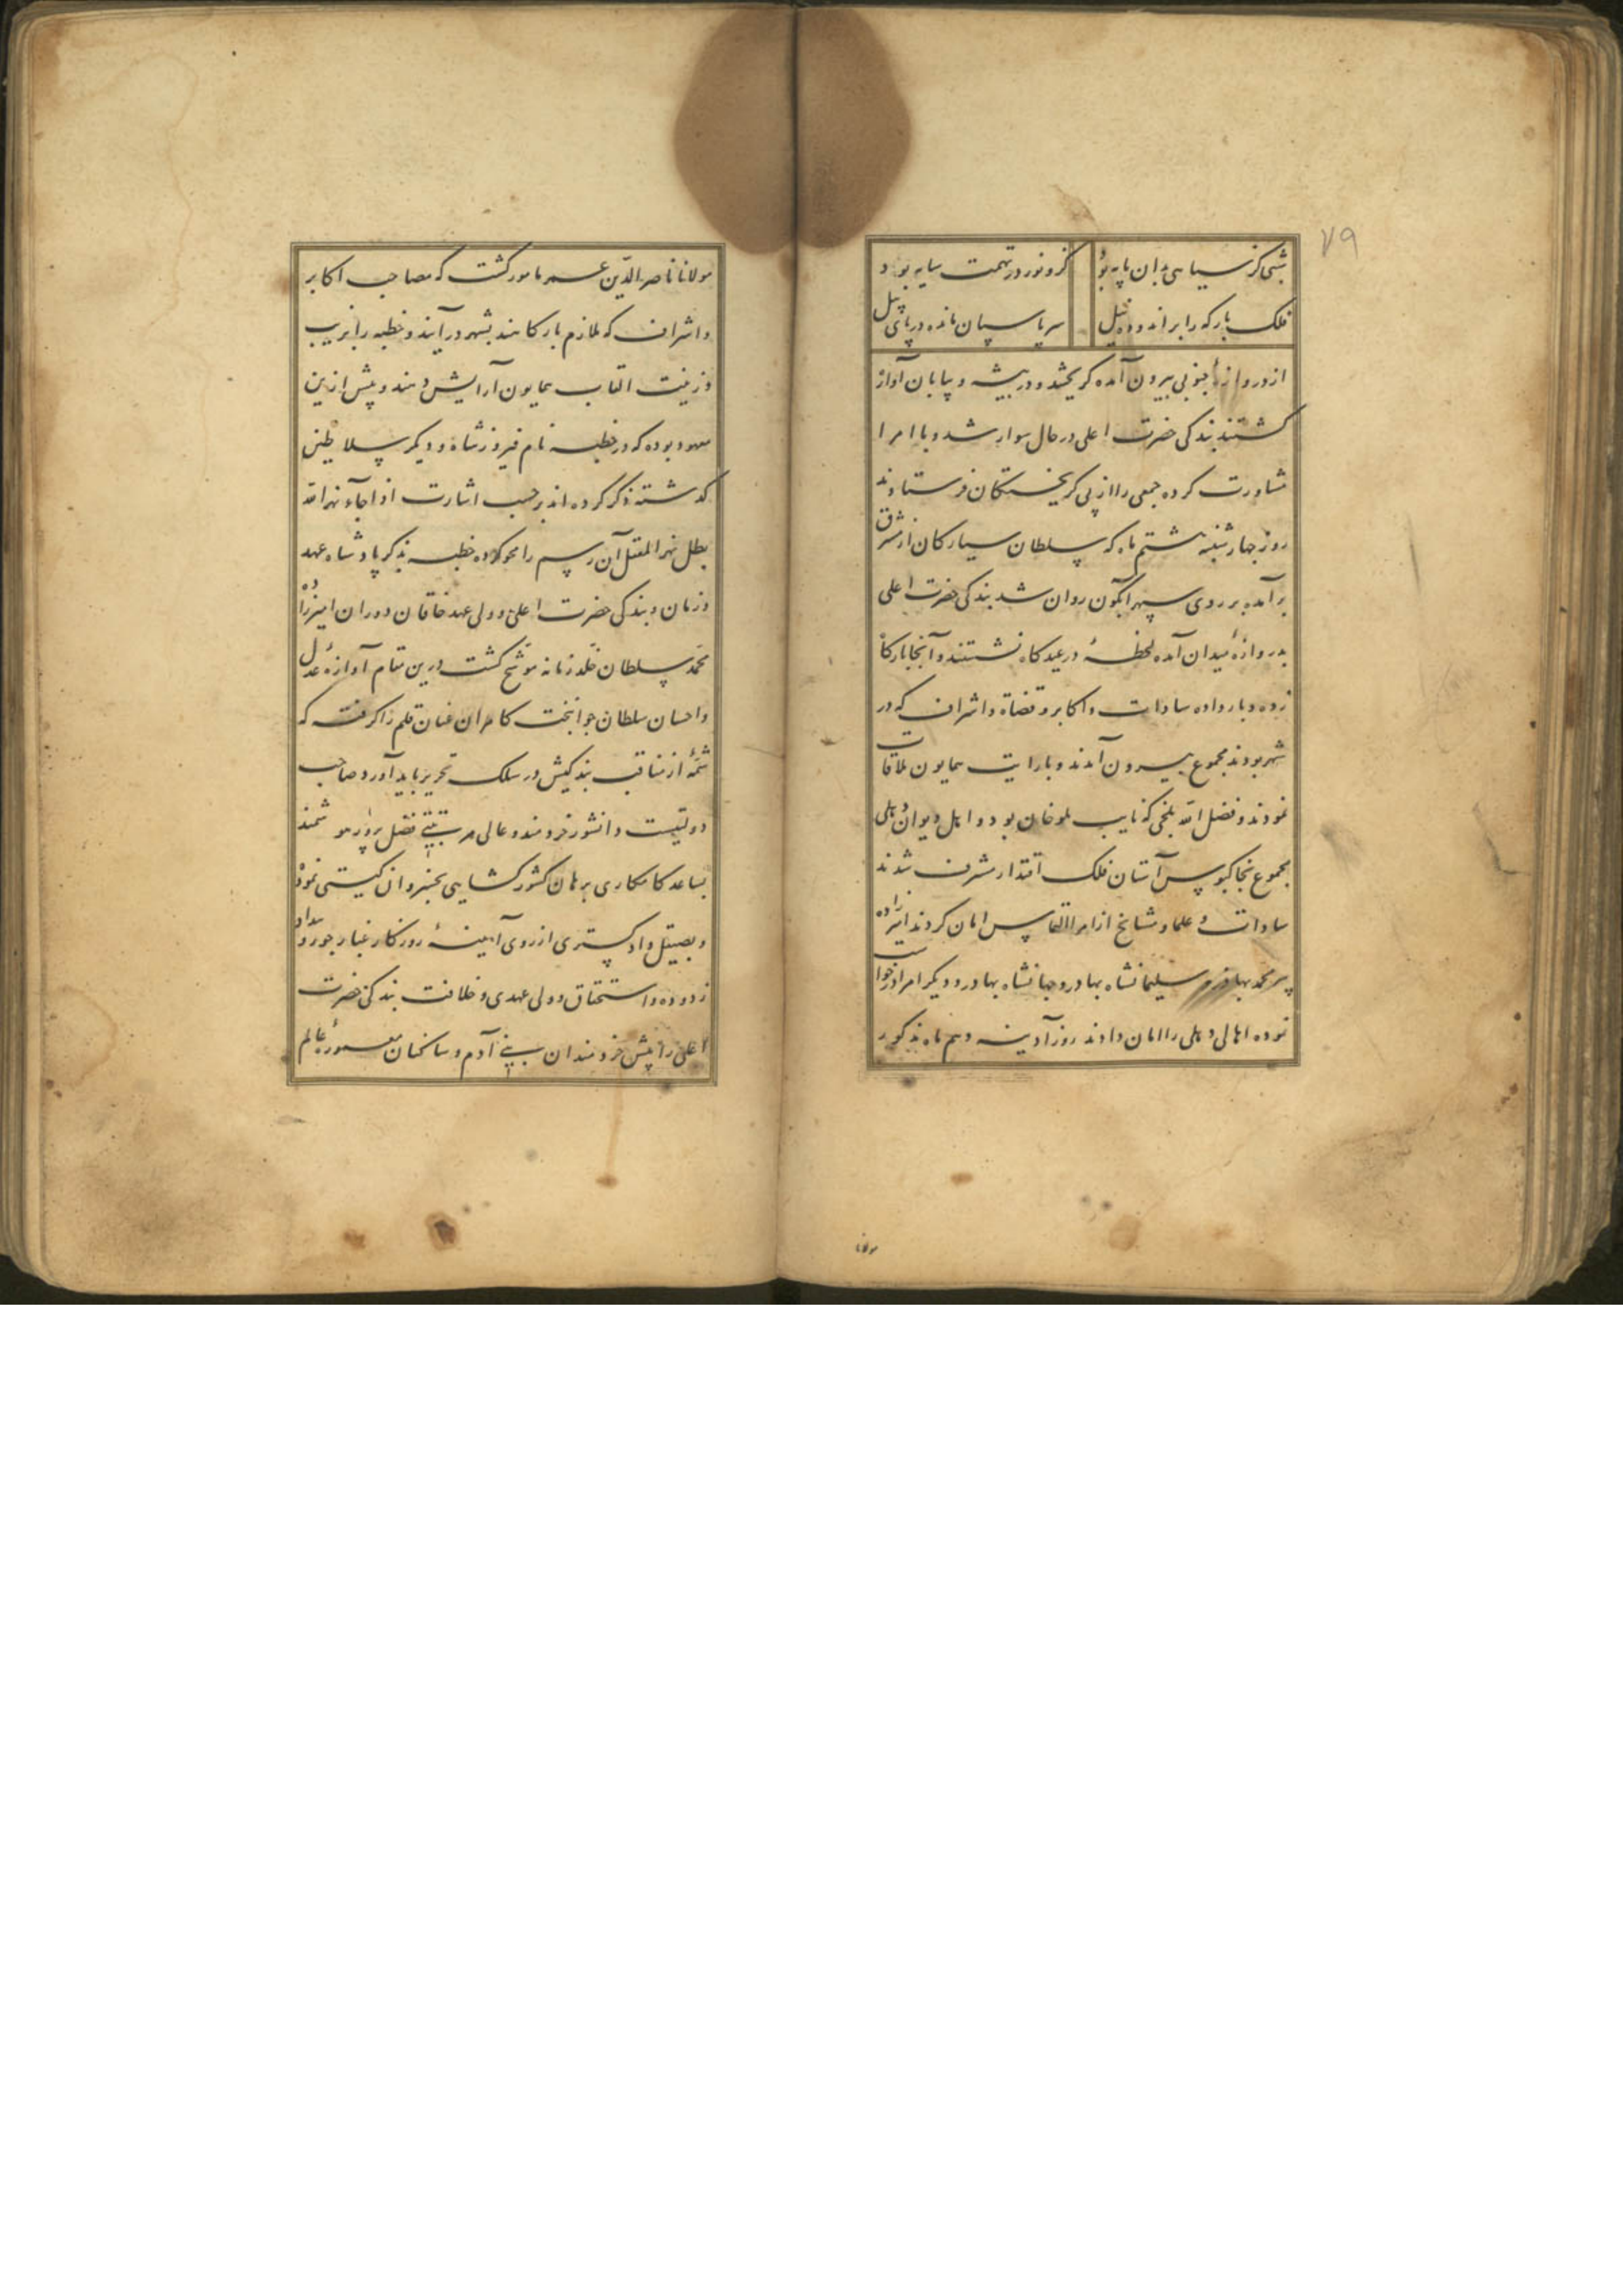 ۷۹
شبی کز سیاهی بدان پایه بود
کزو نور در تهمت سایه بود
فلک بارکه را بر اندوده نیل
سر پاسبان مانده در پای پیل
از دروازهٔ جنوبی بیرون آمده کریختند و در بیشه و بیابان آواره
کشتند بندکی حضرت اعلی در حال سوار شد و با امرا
مشاورت کرده جمعی را از پی کریختکان فرستادند
روز چهارشنبه هشتم ماه که سلطان سیارکان از مشرق
برآمده بر روی سپهر آبکون روان شد بندکی حضرت اعلی
بدروازهٔ میدان آمده لحظهٔ در عیدکاه نشستند و آنجا بارکاه
زده و بار داده سادات و اکابر و قضاة و اشراف که در
شهر بودند مجموع بیرون آمدند و با رایت همایون ملاقات
نمودند و فضل الله بلخی که نایب ملوخان بود و اهل دیوان دهلی
مجموع بخاکبوس آستان فلک اقتدار مشرف شدند
سادات و علما و مشایخ از امرا التماس امان کردند امیرزاده
پیر محمد بهادر و سلیمانشاه بهادر و جهانشاه بهادر و دیکر امرا درخواست
نموده اهالی دهلی را امان دادند روز آدینه دهم ماه مذکور
مولانا
مولانا ناصر الدین عمر مامور کشت که مصاحب اکابر
و اشراف که ملازم بارکاهند بشهر درآیند و خطبه را بزیب
و زینت القاب همایون آرایش دهند و پیش ازین
معهود بوده که در خطبه نام فیروز شاه و دیکر سلاطین
کذشته ذکر کرده اند بر حسب اشارت اذا جاء نهر الله
بطل نهر المعقل آن رسم را محو کرده خطبه بذکر پادشاه عهد
و زمان و بندکی حضرت اعلی و ولی عهد خاقان دوران امیرزاده
محمد سلطان خلد زمانه موشح کشت درین مقام آوازهٔ عدل
و احسان سلطان جوانبخت کامران عنان قلم را کرفت که
شمهٔ از مناقب بندکیش در سلک تحریر باید آورد صاحب
دولتیست دانشور خردمند و عالی مرتبتی فضل پرور هوشمند
بساعد کامکاری برهان کشورکشایی بخسروان کیتی نموده
و بصیقل دادکستری از روی آیینهٔ روزکار غبار جور و بیداد
زدوده و استحقاق ولی عهدی و خلافت بندکی حضرت
اعلی را پیش خردمندان بنی آدم و ساکنان معمورهٔ عالم